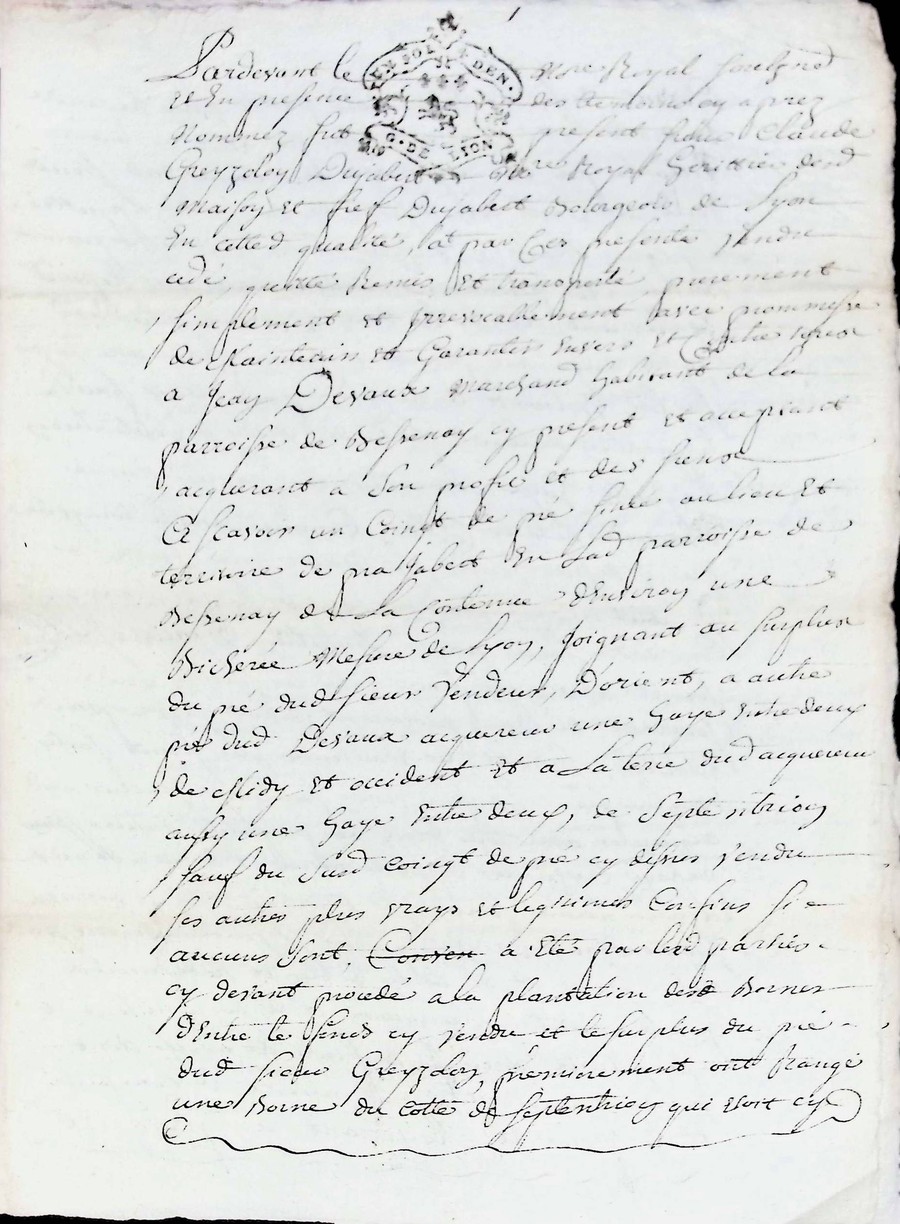 Pardevant le Nore. Royal soubzné
et En presence des temoins cy aprez
Nommez fut present sieur Claude
Greyzdoy Dujabert Nre Royal heritier dud
Maison et fief Dujabert Bourgeois de Lyon
En cette qualité, at par Ces presente vendu
cedé, quitté Remis, Et transporté, purement
simplement et Irrevocablement avec prommesse
de Maintenir et Garantir Envers Et Contre tous
a Jean Devaux Marchand habitant de la
parroisse de Bessenay cy present et acceptant
acquerant a Son profit et des siens
Et Scavoir un Coingt de pré situé au lieu Et
terrtoire de pra Jabert En Lad parroisse de
Bessenay de La Contenue d'Environ une
Bicherée Mesure de Lyon, Joignant au surplus
du pré dud sieur vendeur, D'orient, a autre
pré dud Devaux acquereur une haye Entre deux
de Midy et occident et a La terre dud acquereur
aussy une haye Entre deux, de Septentrion
sauf du Susd Coingt de pré cy dessus vendu
ses autres plus vrays et legitimes Confins si
aucuns Sont, Conven a Eté par lesd parties
cy devant procedé a la plantation desd Bornes
d'Entre le fonds cy vendu et le surplus du pré
dud sieur Greyzdoy, premierement ont Rangé
une Borne du Cotté de septentrion qui Etoit cy
EN SOL EN DEN
G. DE LYON